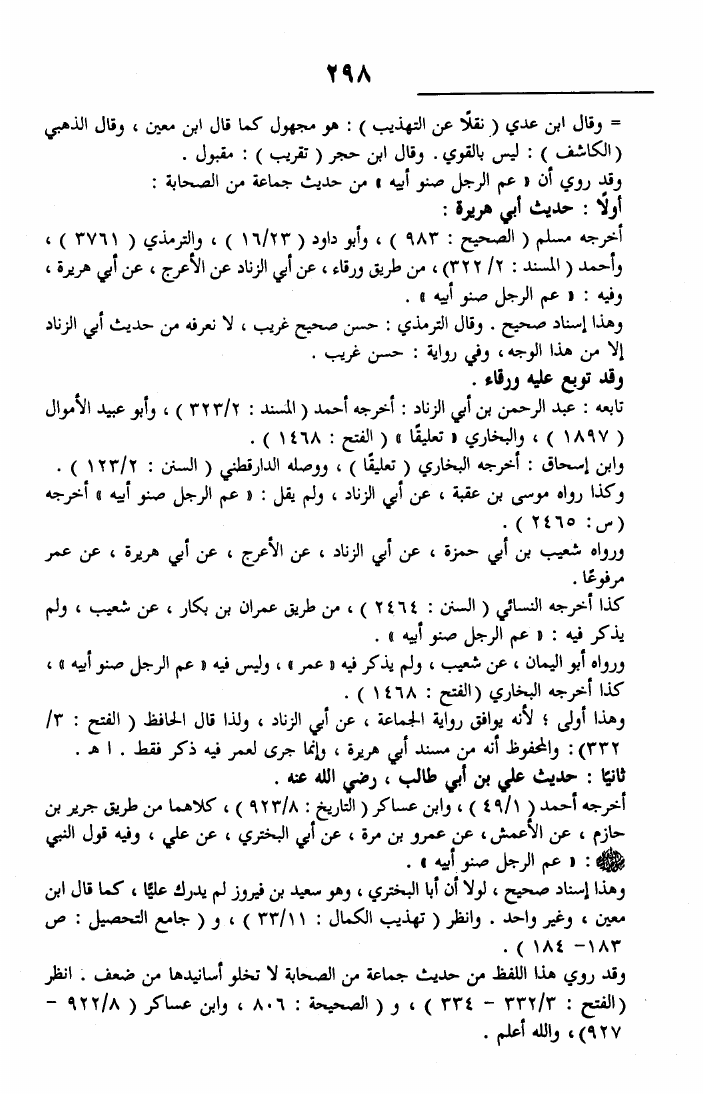 ٢٩٨
= وقال ابن عدي ( نقلًا عن التهذيب ) : هو مجهول كما قال ابن معين ، وقال الذهبي
( الكاشف ) : ليس بالقوي . وقال ابن حجر ( تقريب ) : مقبول .
وقد روي أن « عم الرجل صنو أبيه » من حديث جماعة من الصحابة :
أولًا : حديث أبي هريرة :
أخرجه مسلم ( الصحيح : ٩٨٣ ) ، وأبو داود ( ١٦/٢٣ ) ، والترمذي ( ٣٧٦١ ) ،
وأحمد ( المسند : ٢/ ٣٢٢) ، من طريق ورقاء ، عن أبي الزناد عن الأعرج ، عن أبي هريرة ،
وفيه : « عم الرجل صنو أبيه » .
وهذا إسناد صحيح . وقال الترمذي : حسن صحيح غريب ، لا نعرفه من حديث أبي الزناد
إلا من هذا الوجه، وفي رواية : حسن غريب .
وقد توبع عليه ورقاء .
تابعه : عبد الرحمن بن أبي الزناد : أخرجه أحمد ( المسند : ٣٢٣/٢ ) ، وأبو عبيد الأموال
( ١٨٩٧ ) ، والبخاري « تعليقًا » ( الفتح : ١٤٦٨ ) .
وابن إسحاق : أخرجه البخاري ( تعليقًا ) ، ووصله الدارقطني ( السنن : ١٢٣/٢ ) .
وكذا رواه موسى بن عقبة ، عن أبي الزناد ، ولم يقل : « عم الرجل صنو أبيه » أخرجه
( س : ٢٤٦٥ ) .
ورواه شعيب بن أبي حمزة ، عن أبي الزناد ، عن الأعرج ، عن أبي هريرة ، عن عمر
مرفوعًا .
كذا أخرجه النسائي ( السنن : ٢٤٦٤ ) ، من طريق عمران بن بكار ، عن شعيب ، ولم
يذكر فيه : « عم الرجل صنو أبيه » .
ورواه أبو اليمان ، عن شعيب ، ولم يذكر فيه « عمر » ، وليس فيه « عم الرجل صنو أبيه » ،
كذا أخرجه البخاري ( الفتح : ١٤٦٨ ) .
وهذا أولى ؛ لأنه يوافق رواية الجماعة ، عن أبي الزناد ، ولذا قال الحافظ ( الفتح : ٣/
٣٣٢) : والمحفوظ أنه من مسند أبي هريرة ، وإنما جرى لعمر فيه ذكر فقط . ا هـ .
ثانيًا : حديث علي بن أبي طالب ، رضي الله عنه .
أخرجه أحمد ( ٤٩/١ ) ، وابن عساكر ( التاريخ : ٩٢٣/٨ ) ، كلاهما من طريق جرير بن
حازم ، عن الأعمش، عن عمرو بن مرة ، عن أبي البختري ، عن علي ، وفيه قول النبي
ﷺ : « عم الرجل صنو أبيه » .
وهذا إسناد صحيح ، لولا أن أبا البختري ، وهو سعيد بن فيروز لم يدرك عليًا ، كما قال ابن
معين ، وغير واحد . وانظر ( تهذيب الكمال : ٣٣/١١ ) ، و ( جامع التحصيل : ص
١٨٣– ١٨٤ ) .
وقد روي هذا اللفظ من حديث جماعة من الصحابة لا تخلو أسانيدها من ضعف . انظر
(الفتح : ٣٣٢/٣ – ٣٣٤ ) ، و ( الصحيحة : ٨٠٦ ، وابن عساكر ( ٩٢٢/٨ –
٩٢٧) ، والله أعلم .